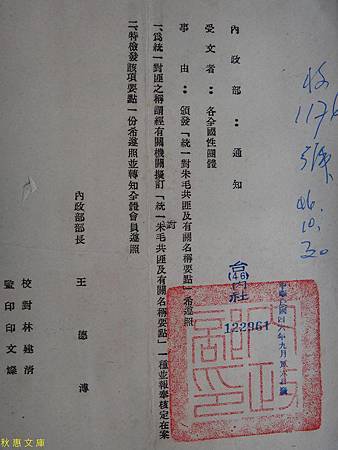 收
117
號
46.
10.
30
內政部：通知
受文者：各全國性團體
事由：頒發「統一對朱毛共匪及有關名稱要點」希遵照
一、爲統一對匪之稱謂經有關機關擬訂「統一朱毛共匪及有關名稱要點」一種並報奉核定在案
訂
二、特檢發該項要點一份希遵照並轉知全體會員遵照
內政部部長 王德溥
校對林建清
監印印文燦
台(46)內社
122961
中華民國四六年九月
內政部印
秋惠文庫